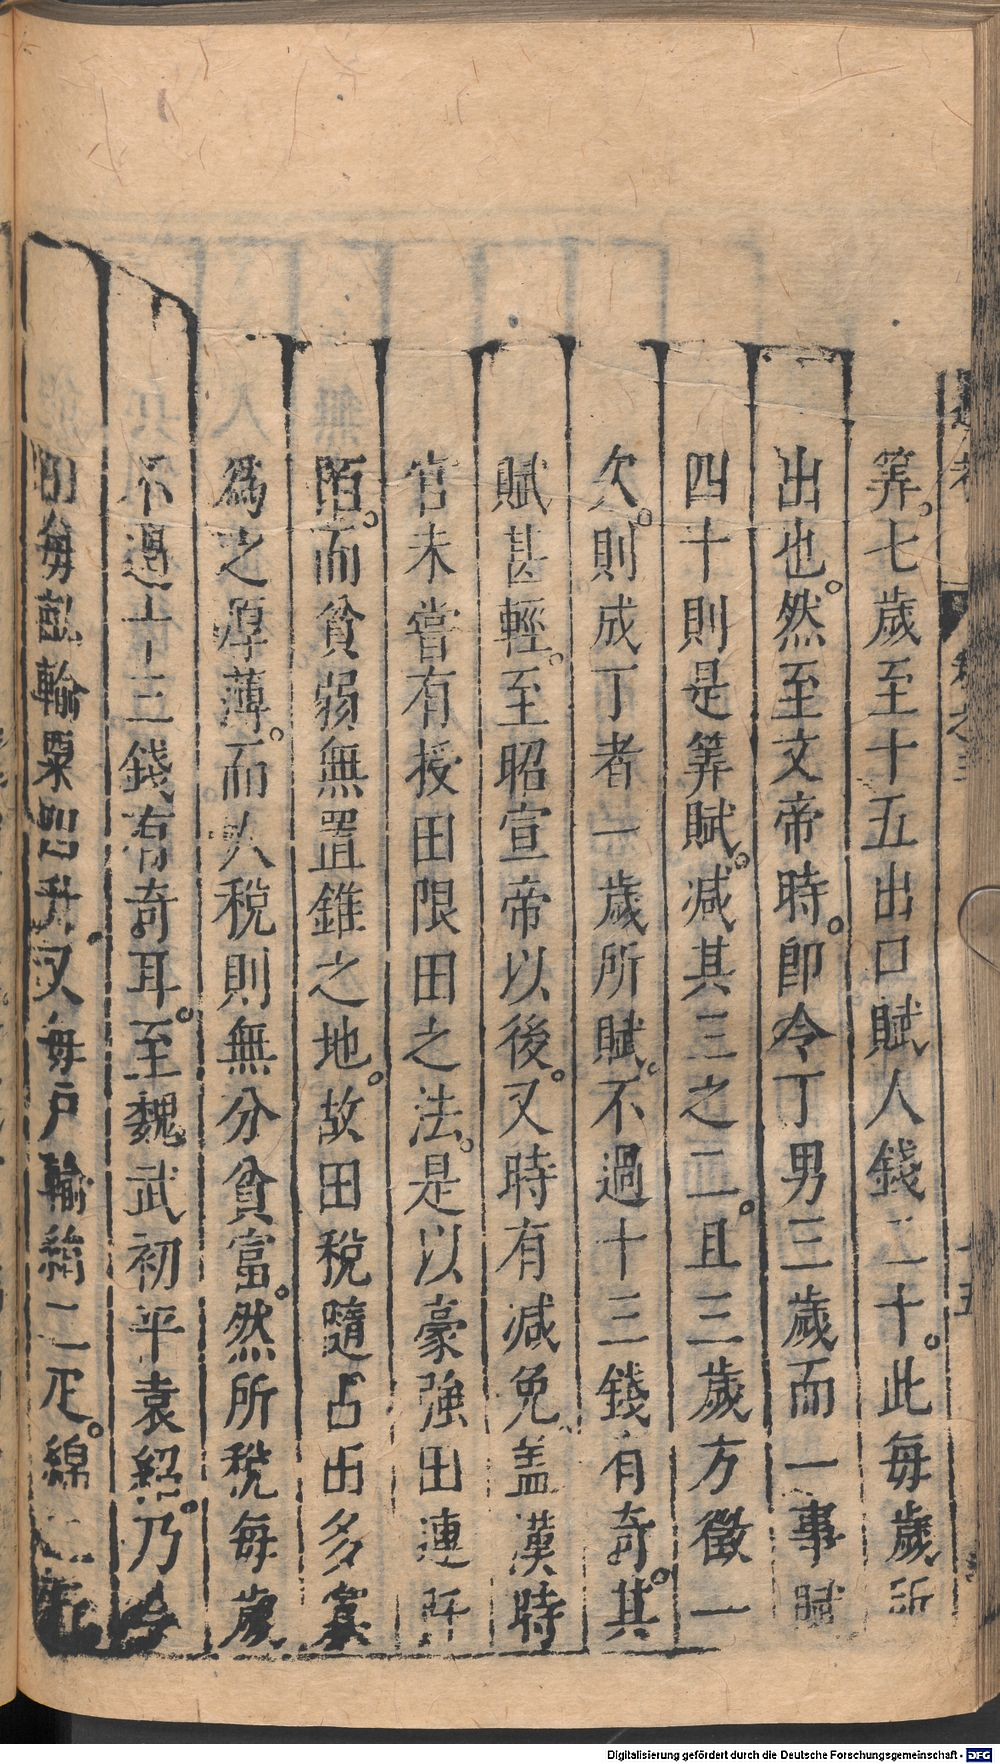 通考 卷之三 十五
筭。七歲至十五出口賦人錢二十。此每歲所
出也。然至文帝時。即令丁男三歲而一事賦
四十則是筭賦。减其三之二。且三歲方徵一
次。則成丁者一歲所賦。不過十三錢有奇。其
賦甚輕。至昭宣帝以後。又時有减免盖漢時
官未嘗有授田限田之法。是以豪強田連阡
陌。而貧弱無置錐之地。故田稅隨占田多寡
爲之厚薄。而人稅則無分貧富。然所稅每歲
不過十三錢有奇耳。至魏武初平袁紹。乃令
田每畝輸粟四升又每戶輸絹二疋。綿二斤
Digitalisierung gefördert durch die Deutsche Forschungsgemeinschaft - DFG